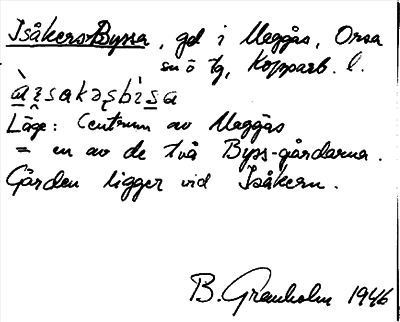 Isåkers-Byssa, gd i Maggås, Orsa
sn ö tg, Kopparb. l.
Läge: Centrum av Maggås
= en av de två Byss-gårdarna.
Gården ligger vid Isåkern.
B. Granholm 1946